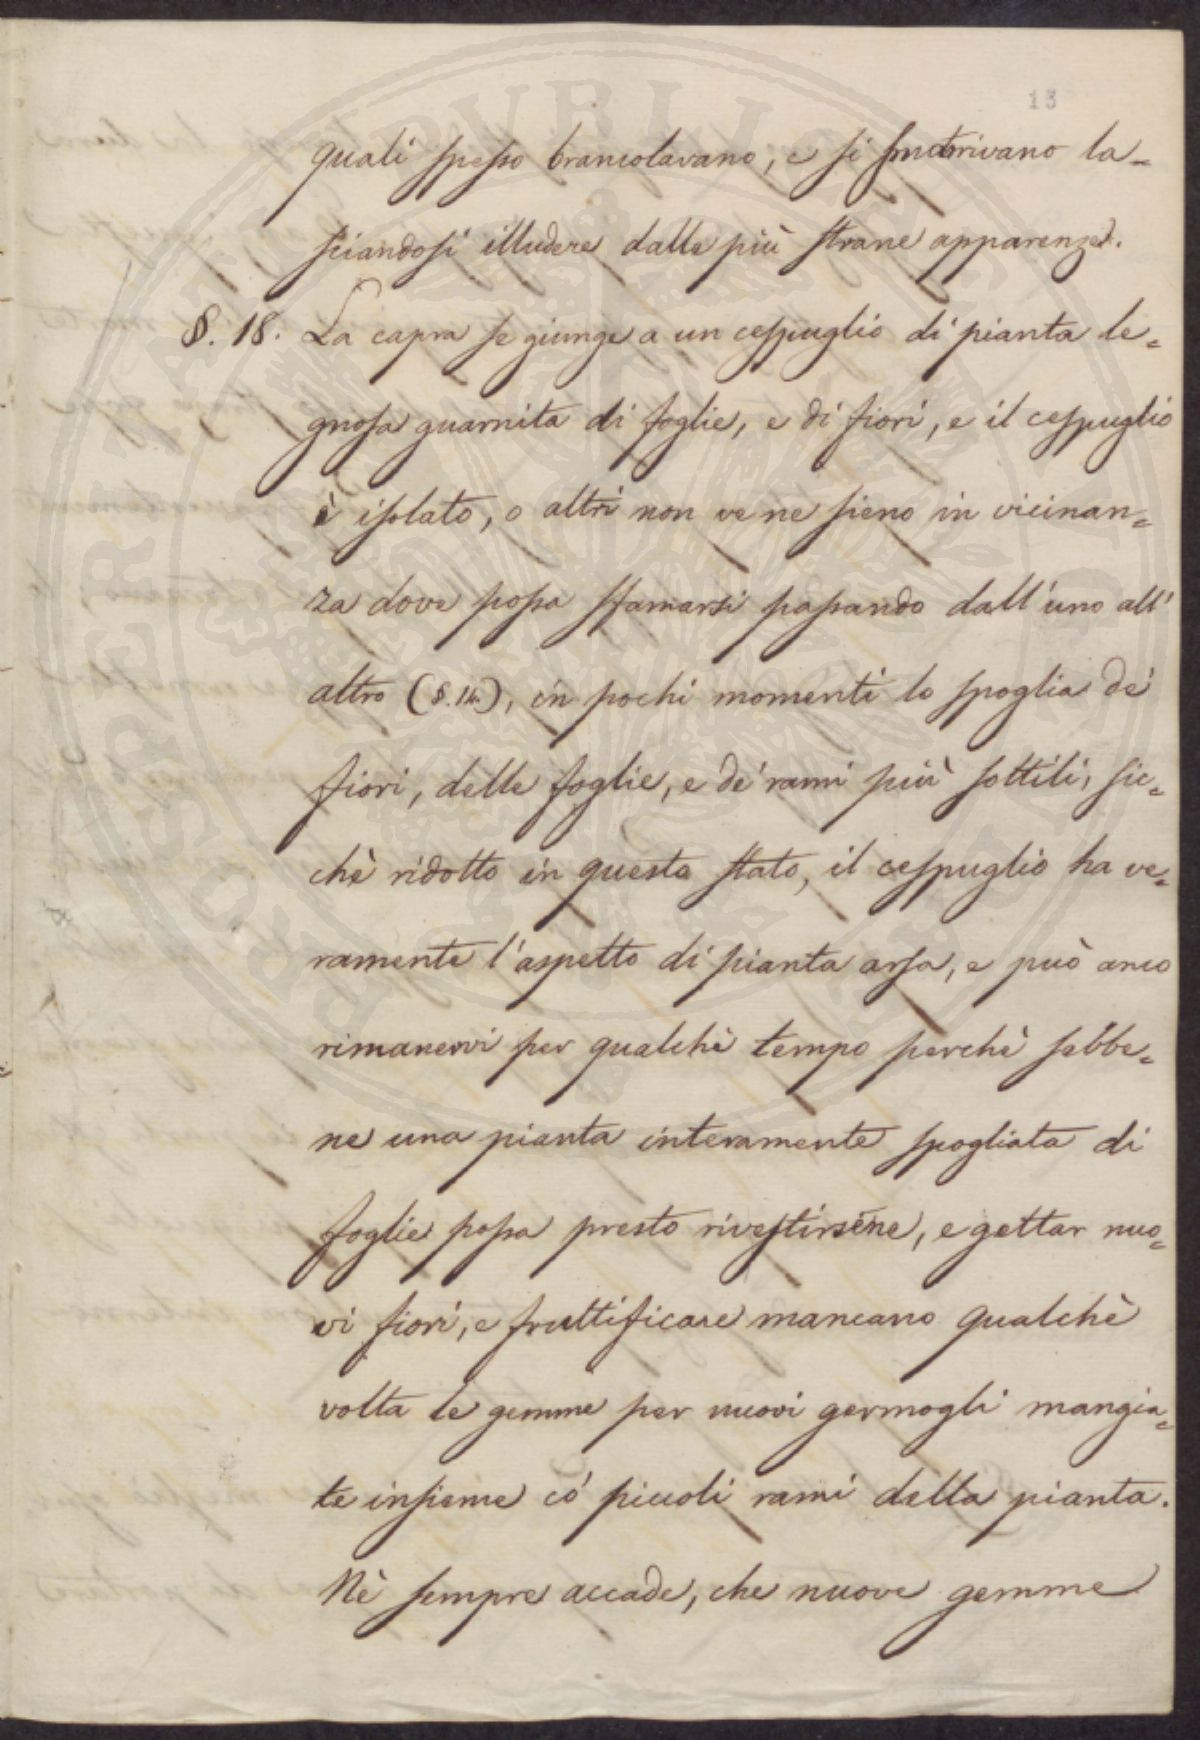 13
quali spesso brancolavano, e si smarrivano la-
sciandosi illudere dalle più strane apparenze.
§. 18. La capra se giunge a un cespuglio di pianta le=
gnosa guarnita di foglie, e di fiori, e il cespuglio
è isolato, o altri non ve ne sieno in vicinan=
za dove possa sfamarsi passando dall'uno all'
altro (§. 14.), in pochi momenti lo spoglia de'
fiori, delle foglie, e de' rami più sottili, sic=
chè ridotto in questo stato, il cespuglio ha ve=
ramente l'aspetto di pianta arsa, e può anco
rimanervi per qualchè tempo perchè sebbe=
ne una pianta interamente spogliata di
foglie possa presto rivestirsene, e gettar nuo=
vi fiori, e fruttificare mancano qualchè
volta le gemme per nuovi germogli mangia=
te insieme co' piccoli rami della pianta.
Nè sempre accade, che nuove gemme